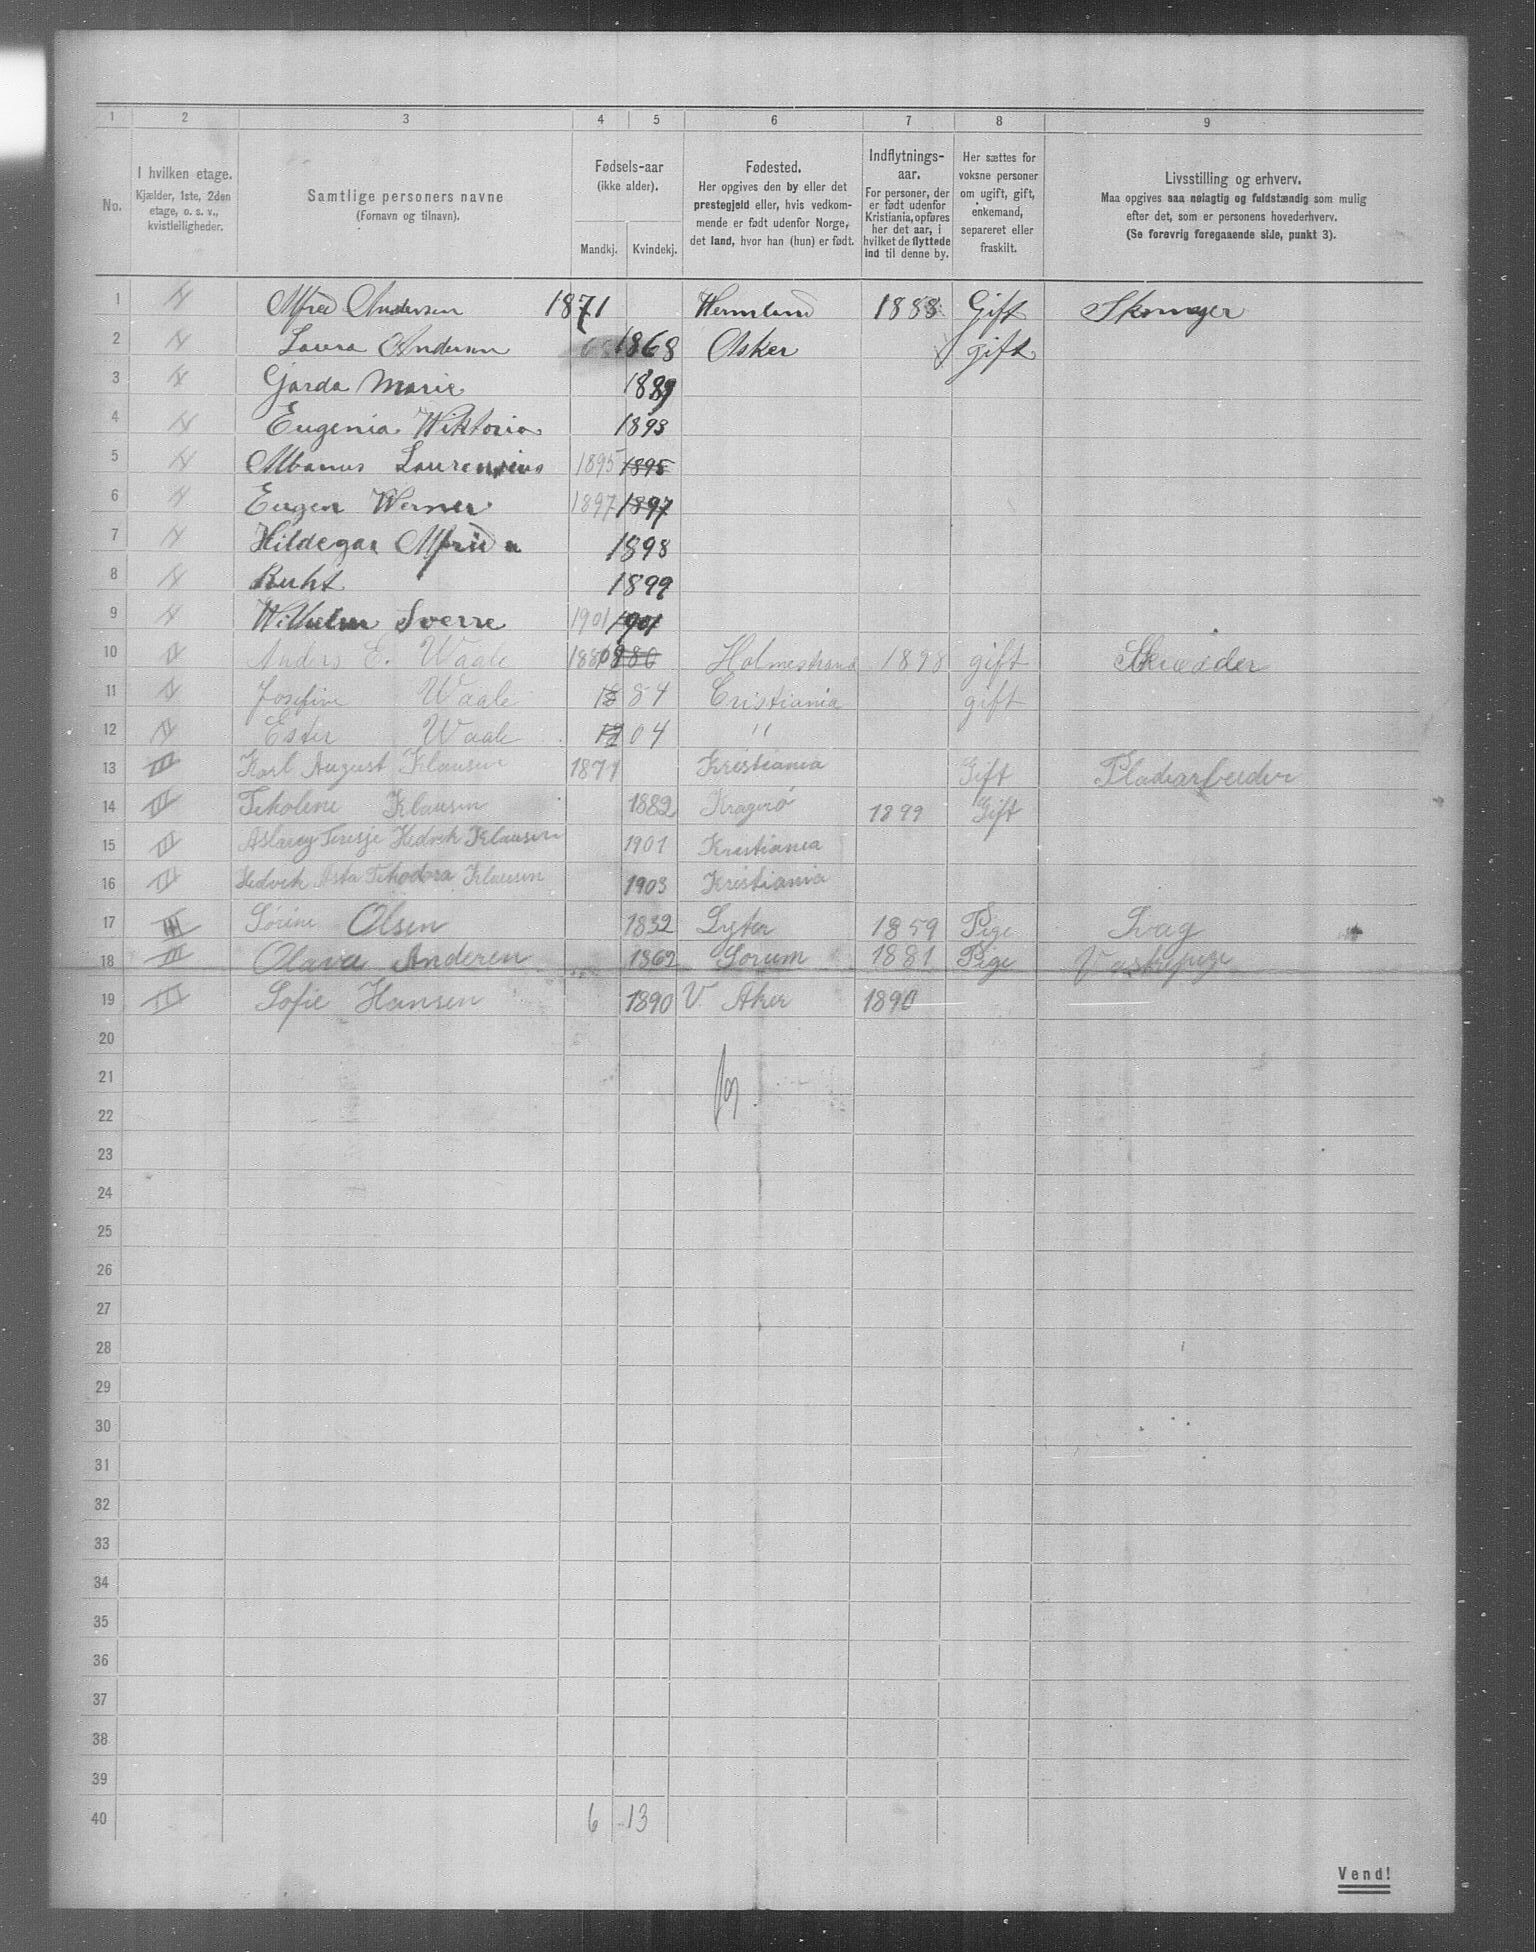 1 2 3 4 5 6 7 8 9
No.
I hvilken etage.
Kjælder, 1ste, 2den
etage, o. s. v.,
kvistleiligheder.
Samtlige personers navne
(Fornavn og tilnavn).
Fødsels-aar
(ikke alder).
Mandkj. Kvindekj.
Fødested.
Her opgives den by eller det
prestegjeld eller, hvis vedkom-
mende er født udenfor Norge,
det land, hvor han (hun) er født.
Indflytnings-
aar.
For personer, der
er født udenfor
Kristiania, opføres
her det aar, i
hvilket de flyttede
ind til denne by.
Her sættes for
voksne personer
om ugift, gift,
enkemand,
separeret eller
fraskilt.
Livsstilling og erhverv.
Maa opgives saa nøiagtig og fuldstændig som mulig
efter det, som er personens hovederhverv.
(Se forøvrig foregaaende side, punkt 3).
1 Alfred Andersen 1871 Wermland 1888 Gift
2 Laura Andersen 68 1868 Asker gift
3 Garda Marie 1889
4 Eugenia Wiktoria 1893
5 Albanus Laurensius 1895 1895
6 Eugen Werner 1897 1897
7 Hildegar Alfrida 1898
8 Ruht 1899
9 Wilhelm Sverre 1901 1901
10 IV Anders E. Waale 1880 1880 Holmestrand 1898 gift Skrædder
11 IV Josefine Waale 18 84 Cristiania gift
12 IV Ester Waale 19 04 "
13 III Karl August Klausen 1871 Kristiania Gift Pladsarbeider
14 III Tekolene Klausen 1882 Kragerö 1899 Gift
15 III Aslaug Teresje Hedvik Klausen 1901 Kristiania
16 III Hedvik Asta Tekodora Klausen 1903 Kristiania
17 III Sørine Olsen 1832 1859 Pige Svag
18 III Olava Anderen 1862 Sorum 1881 Pige Vaskepige
19 III Sofie Hansen 1890 V. Aker 1890
20
21
22
23
24
25
26
27
28
29
30
31
32
33
34
35
36
37
38
39
40 6 13
Vend!